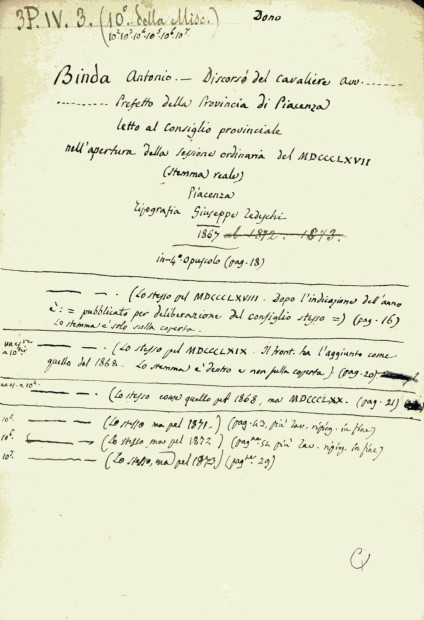 3P. IV. 3. (10°. della Misc.) Dono
Binda Antonio. — Discorso del cavaliere avv. ........
............ Prefetto della Provincia di Piacenza
letto al Consiglio provinciale
nell'apertura della sessione ordinaria del MDCCCLXVII
(stemma reale)
Piacenza
Tipografia Giuseppe Tedeschi
1867 al 1872. 1873.
in-4° opuscolo (pag. 18)
— — . (Lo stesso pel MDCCCLXVIII. Dopo l'indicazione dell'anno
è: = pubblicato per deliberazione del Consiglio stesso =) (pag. 16)
Lo stemma è solo sulla coperta.
— — . (Lo stesso pel MDCCCLXIX. Il front. ha l'aggiunto come
quello del 1868. Lo stemma è dentro e non sulla coperta) (pag. 20)
— — . (Lo stesso come quello pel 1868, ma MDCCCLXX. (pag. 21)
— — (Lo stesso ma pel 1871.) (pag. 43, più Tav. ripieg. in fine)
— — (Lo stesso, ma pel 1872) (pag. 54 più Tav. ripieg. in fine)
— — (Lo stesso, ma pel 1873) (pag. 29)